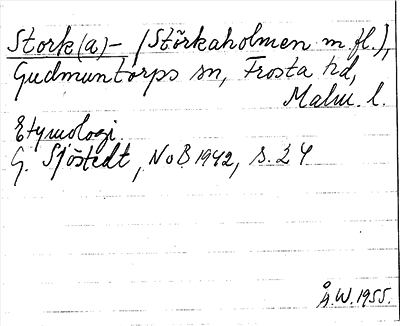 Stork(a)- (Störkaholmen m.fl.),
Gudmuntorps sn, Frosta hd,
Malm. l.
Etymologi.
G. Sjöstedt, NoB 1942, s. 24
Å.W. 1955.